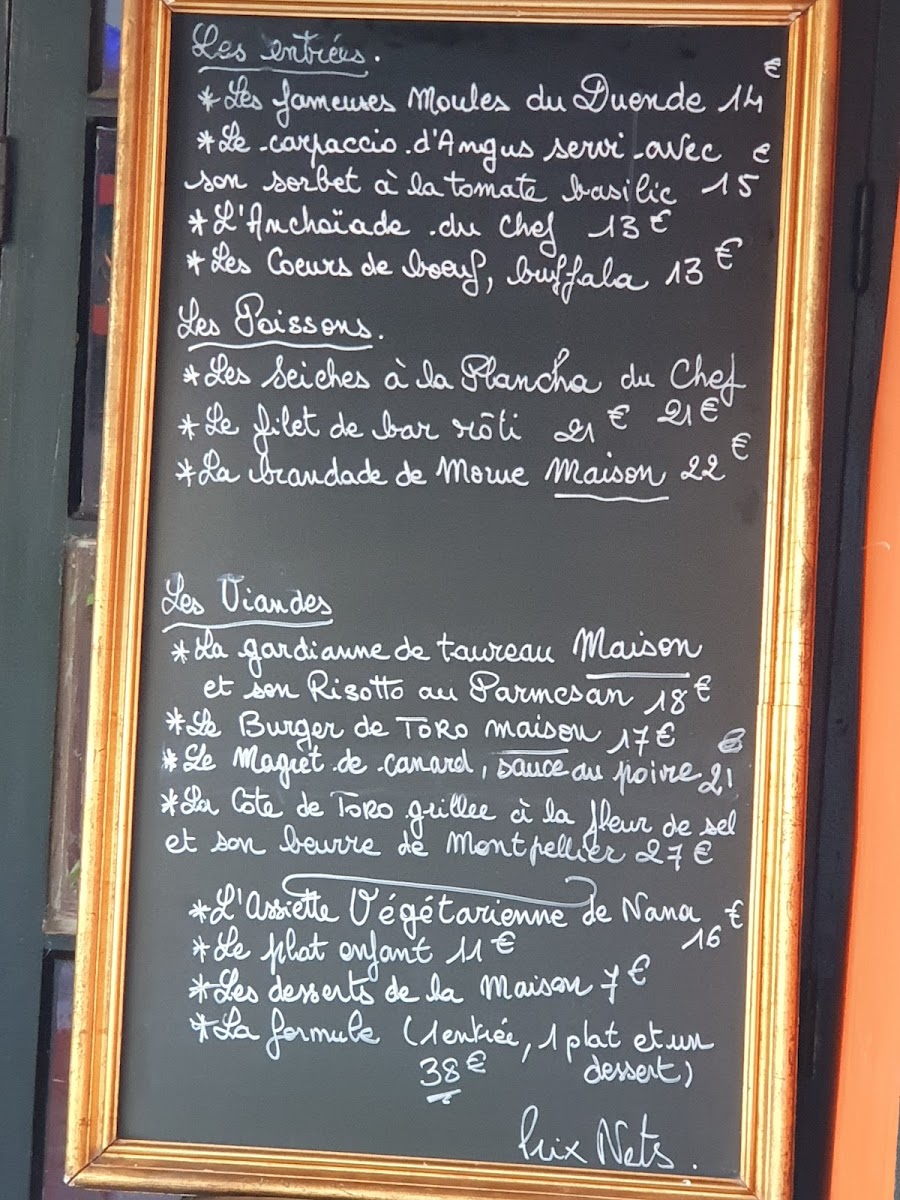 Les entrées.
* Les fameuses Moules du Duende 14€
* Le carpaccio d'Angus servi avec
son sorbet à la tomate basilic 15€
* L'Anchoïade du Chef 13€
* Les Coeurs de boeuf, buffala 13€
Les Poissons.
* Les Seiches à la Plancha du Chef
21€
* Le filet de bar rôti 21€
* La brandade de Morue Maison 22€
Les Viandes
* La gardianne de taureau Maison
et son Risotto au Parmesan 18€
* Le Burger de TORO maison 17€
* Le Magret de canard, sauce au poire 21€
* La Côte de TORO grillée à la fleur de sel
et son beurre de Montpellier 27€
* L'Assiette Végétarienne de Nana
16€
* Le plat enfant 11€
* Les desserts de la Maison 7€
* La formule (1 entrée, 1 plat et un
dessert)
38€
Prix Nets.